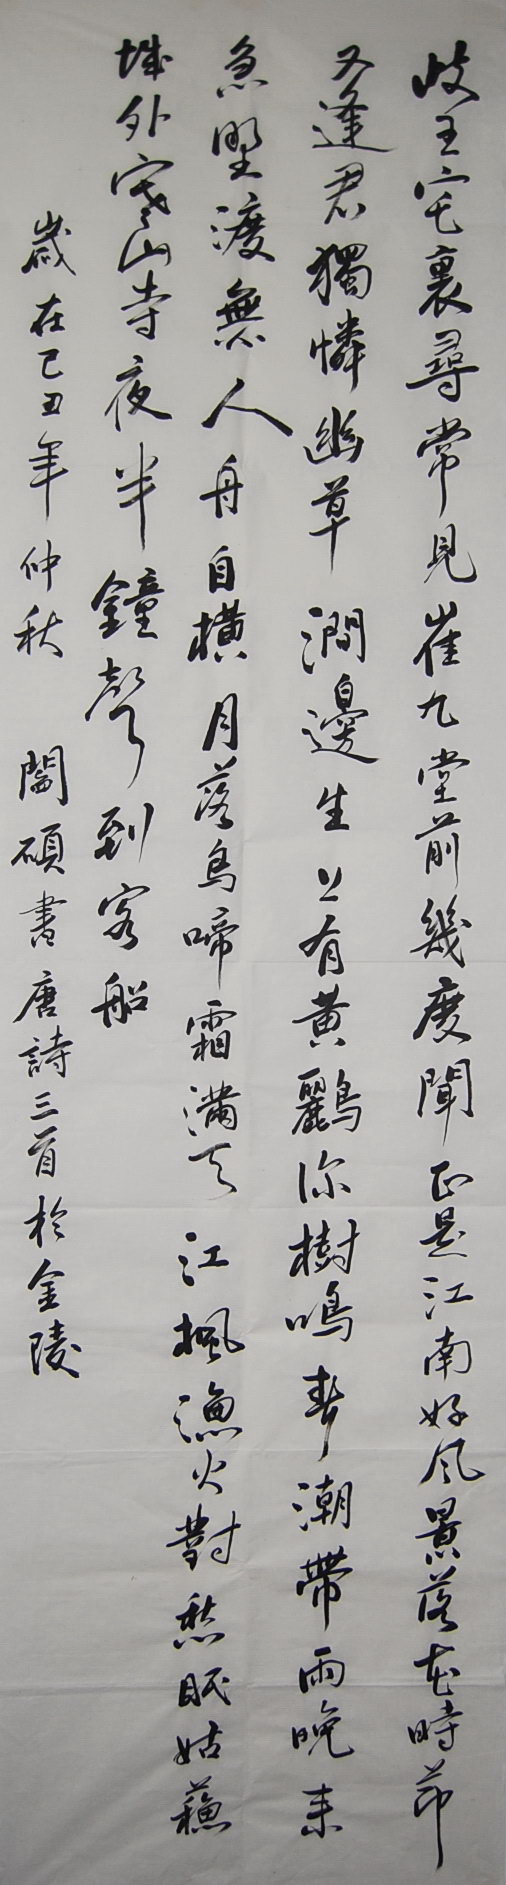 岐王宅裏尋常見崔九堂前幾度聞正是江南好风景落花時節
又逢君獨憐幽草澗邊生上有黄鸝深樹鳴春潮帶雨晚来
急野渡無人舟自横月落烏啼霜满天江楓漁火對愁眠姑蘇
城外寒山寺夜半鐘聲到客船
嵗在己丑年仲秋 闔碩書唐詩三首於金陵